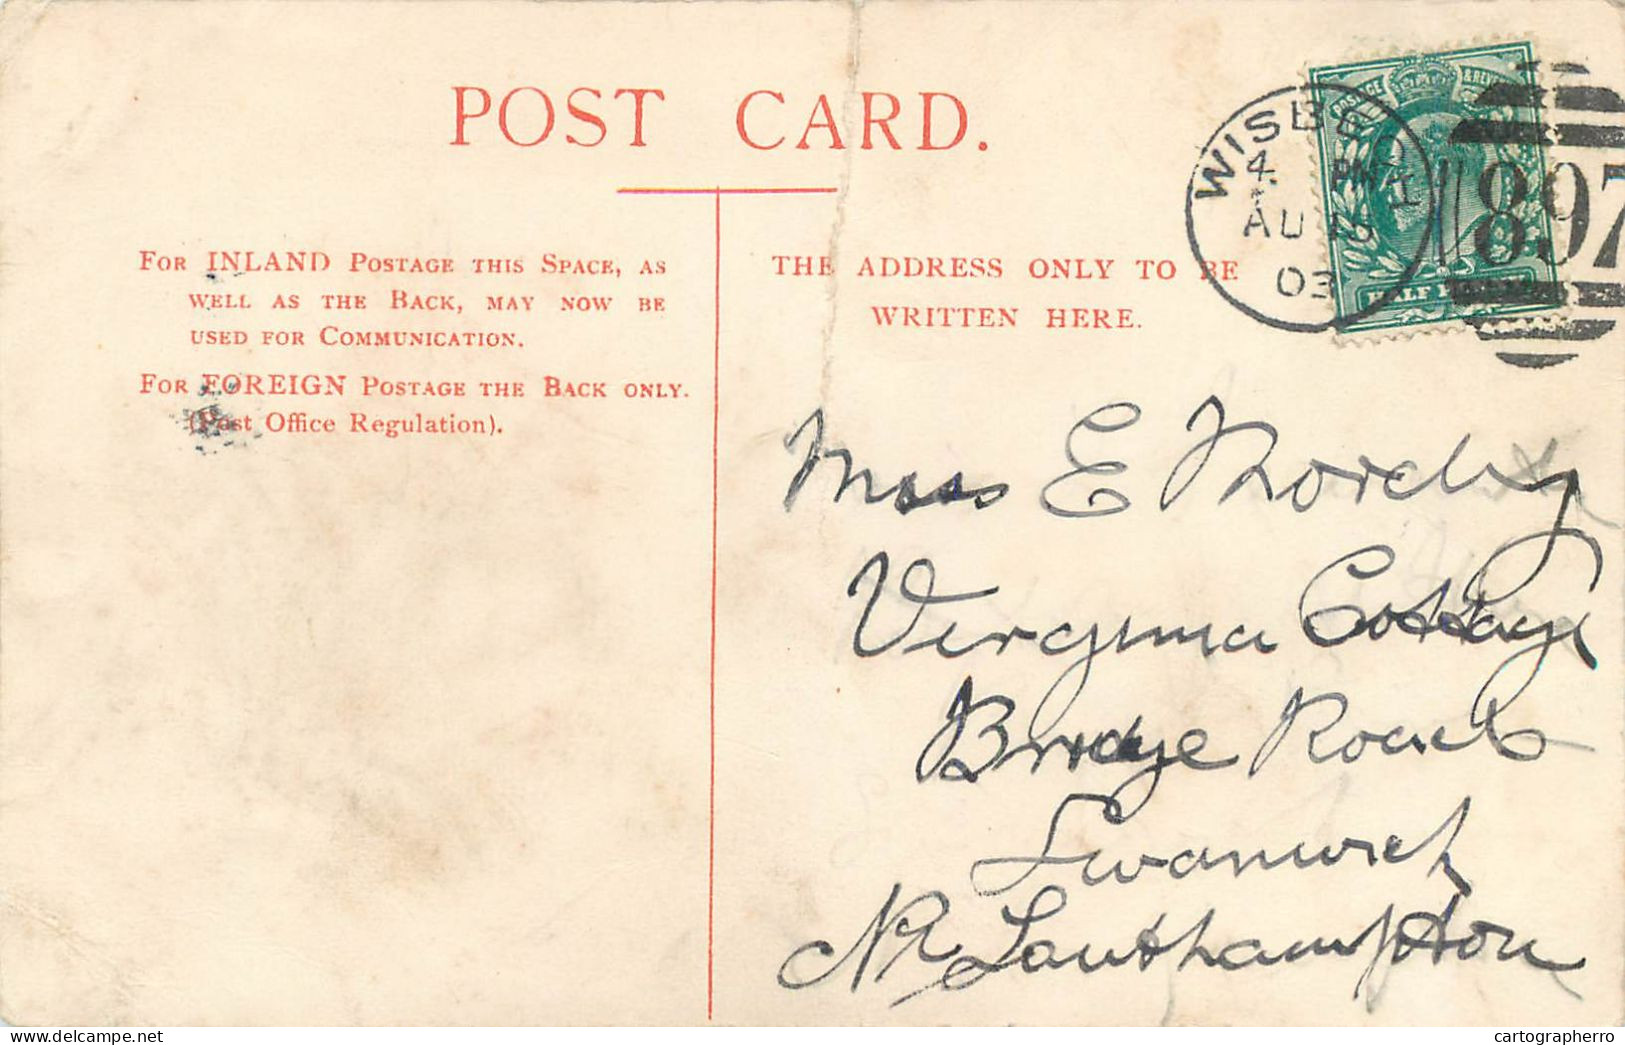 POST CARD.
FOR INLAND POSTAGE THIS SPACE, AS
WELL AS THE BACK, MAY NOW BE
USED FOR COMMUNICATION.
FOR FOREIGN POSTAGE THE BACK ONLY.
(Post Office Regulation).
THE ADDRESS ONLY TO BE
WRITTEN HERE.
POSTAGE & REVE
HALF
WISB
4. PM
AU
03
897
Miss E
Virginia Cottage
Bridge Road
Swanwick
Nr Southampton
cartographerro